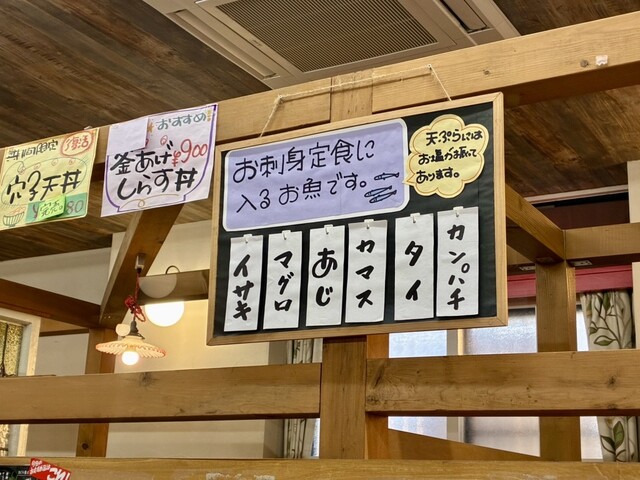 期間限定
復活
穴子天丼
完売
80
おすすめ
釜あげ
¥900
しらす丼
お刺身定食に
入るお魚です。
天ぷらには
お塩が添って
あります。
カンパチ
タイ
カマス
あじ
マグロ
イサキ